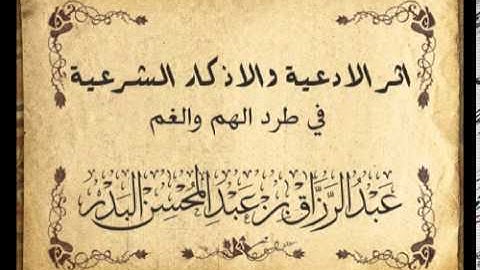 اثر الادعية والاذكار الشرعية
في طرد الهم والغم
عَبْدُ الرَّزَّاقِ بْنِ عَبْدِ الْمُحْسِنِ الْبَدْر